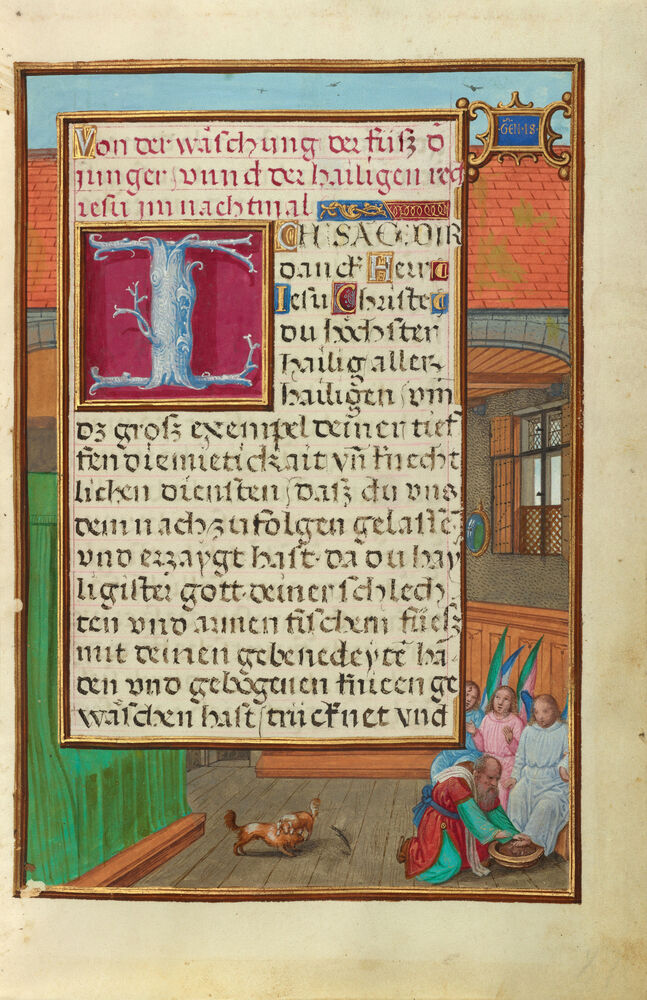 ·GEN·18·
Von der wäschung der füsz d̄
junger, vnnd der hailigen red
iesu im nachtmal
ICH SAG DIR
danck Herr
Iesu Christe
du höchster
hailig aller
hailigen, vm̄
dz grosz exempel deiner tief
fen diemietickait vn̄ knecht
lichen diensten, dasz du vns
dem nachzufolgen gelassē
vnd erzaygt hast· da du hay
ligister gott· deiner schlech
ten vnd armen fischern füesz
mit deinen gebenedeytē hā
den vnd gebogenen knieen ge
wäschen hast, trücknet vnd